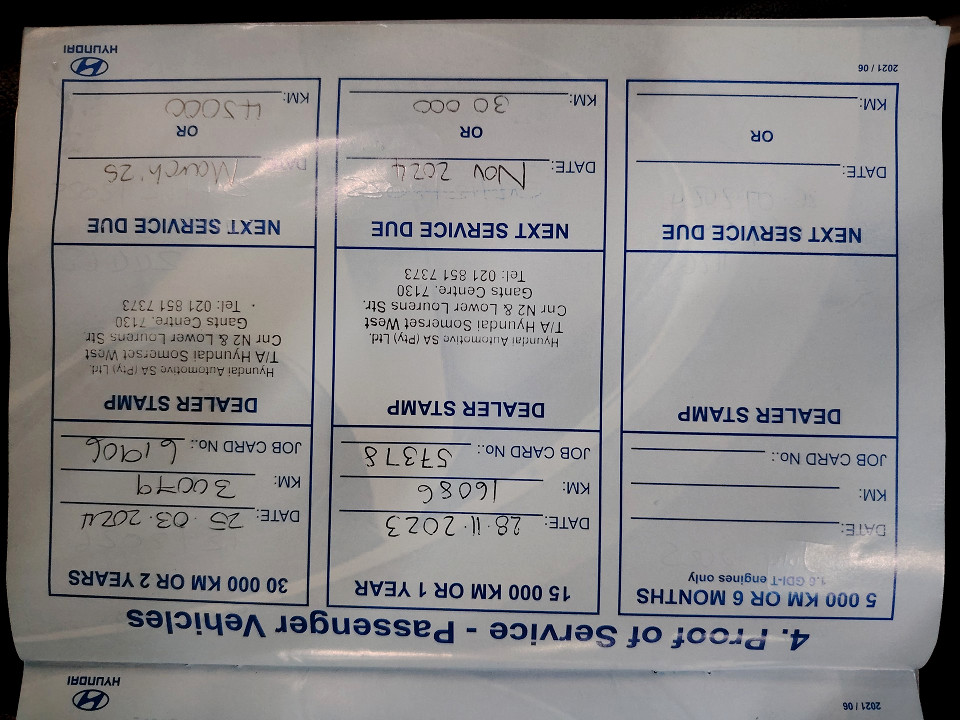 4. Proof of Service - Passenger Vehicles
5 000 KM OR 6 MONTHS
1.6 GDI-T engines only
DATE:
KM:
JOB CARD No.:
DEALER STAMP
NEXT SERVICE DUE
DATE:
OR
KM:
15 000 KM OR 1 YEAR
DATE: 28.11.2023
KM: 16086
JOB CARD No.: 57378
DEALER STAMP
Hyundai Automotive SA (Pty) Ltd.
T/A Hyundai Somerset West
Cnr N2 & Lower Lourens Str.
Gants Centre. 7130
Tel: 021 851 7373
NEXT SERVICE DUE
DATE: Nov 2024
OR
KM: 30 000
30 000 KM OR 2 YEARS
DATE: 25.03.2024
KM: 30079
JOB CARD No.: 61906
DEALER STAMP
Hyundai Automotive SA (Pty) Ltd.
T/A Hyundai Somerset West
Cnr N2 & Lower Lourens Str
Gants Centre. 7130
Tel: 021 851 7373
NEXT SERVICE DUE
DATE: March '25
OR
KM: 45000
2021 / 06
HYUNDAI
2021 / 06
HYUNDAI